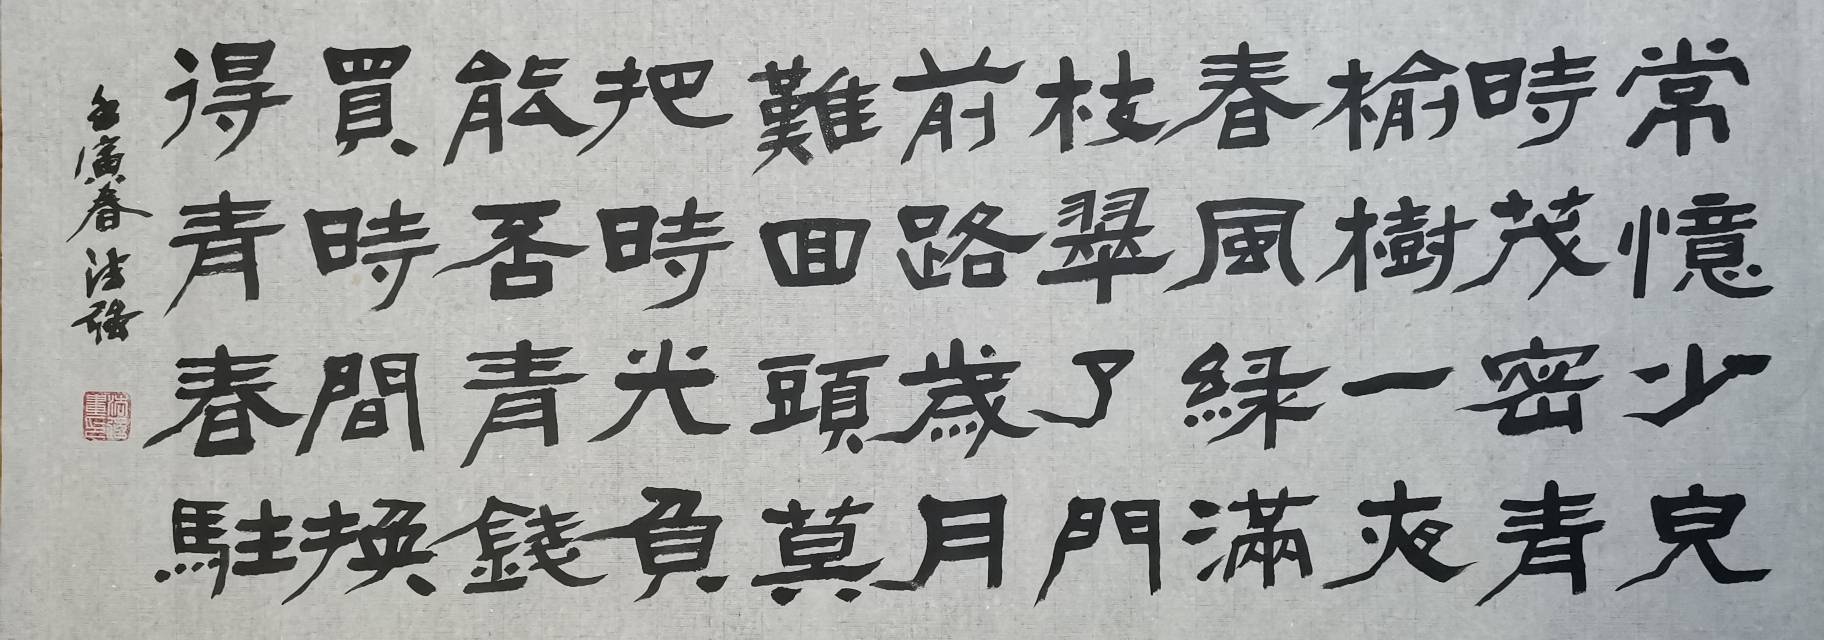 常憶少兒
時茂密青
榆樹一夜
春風綠滿
枝翠了門
前路歲月
難回頭莫
把時光負
能否青錢
買時間換
得青春駐
壬寅春